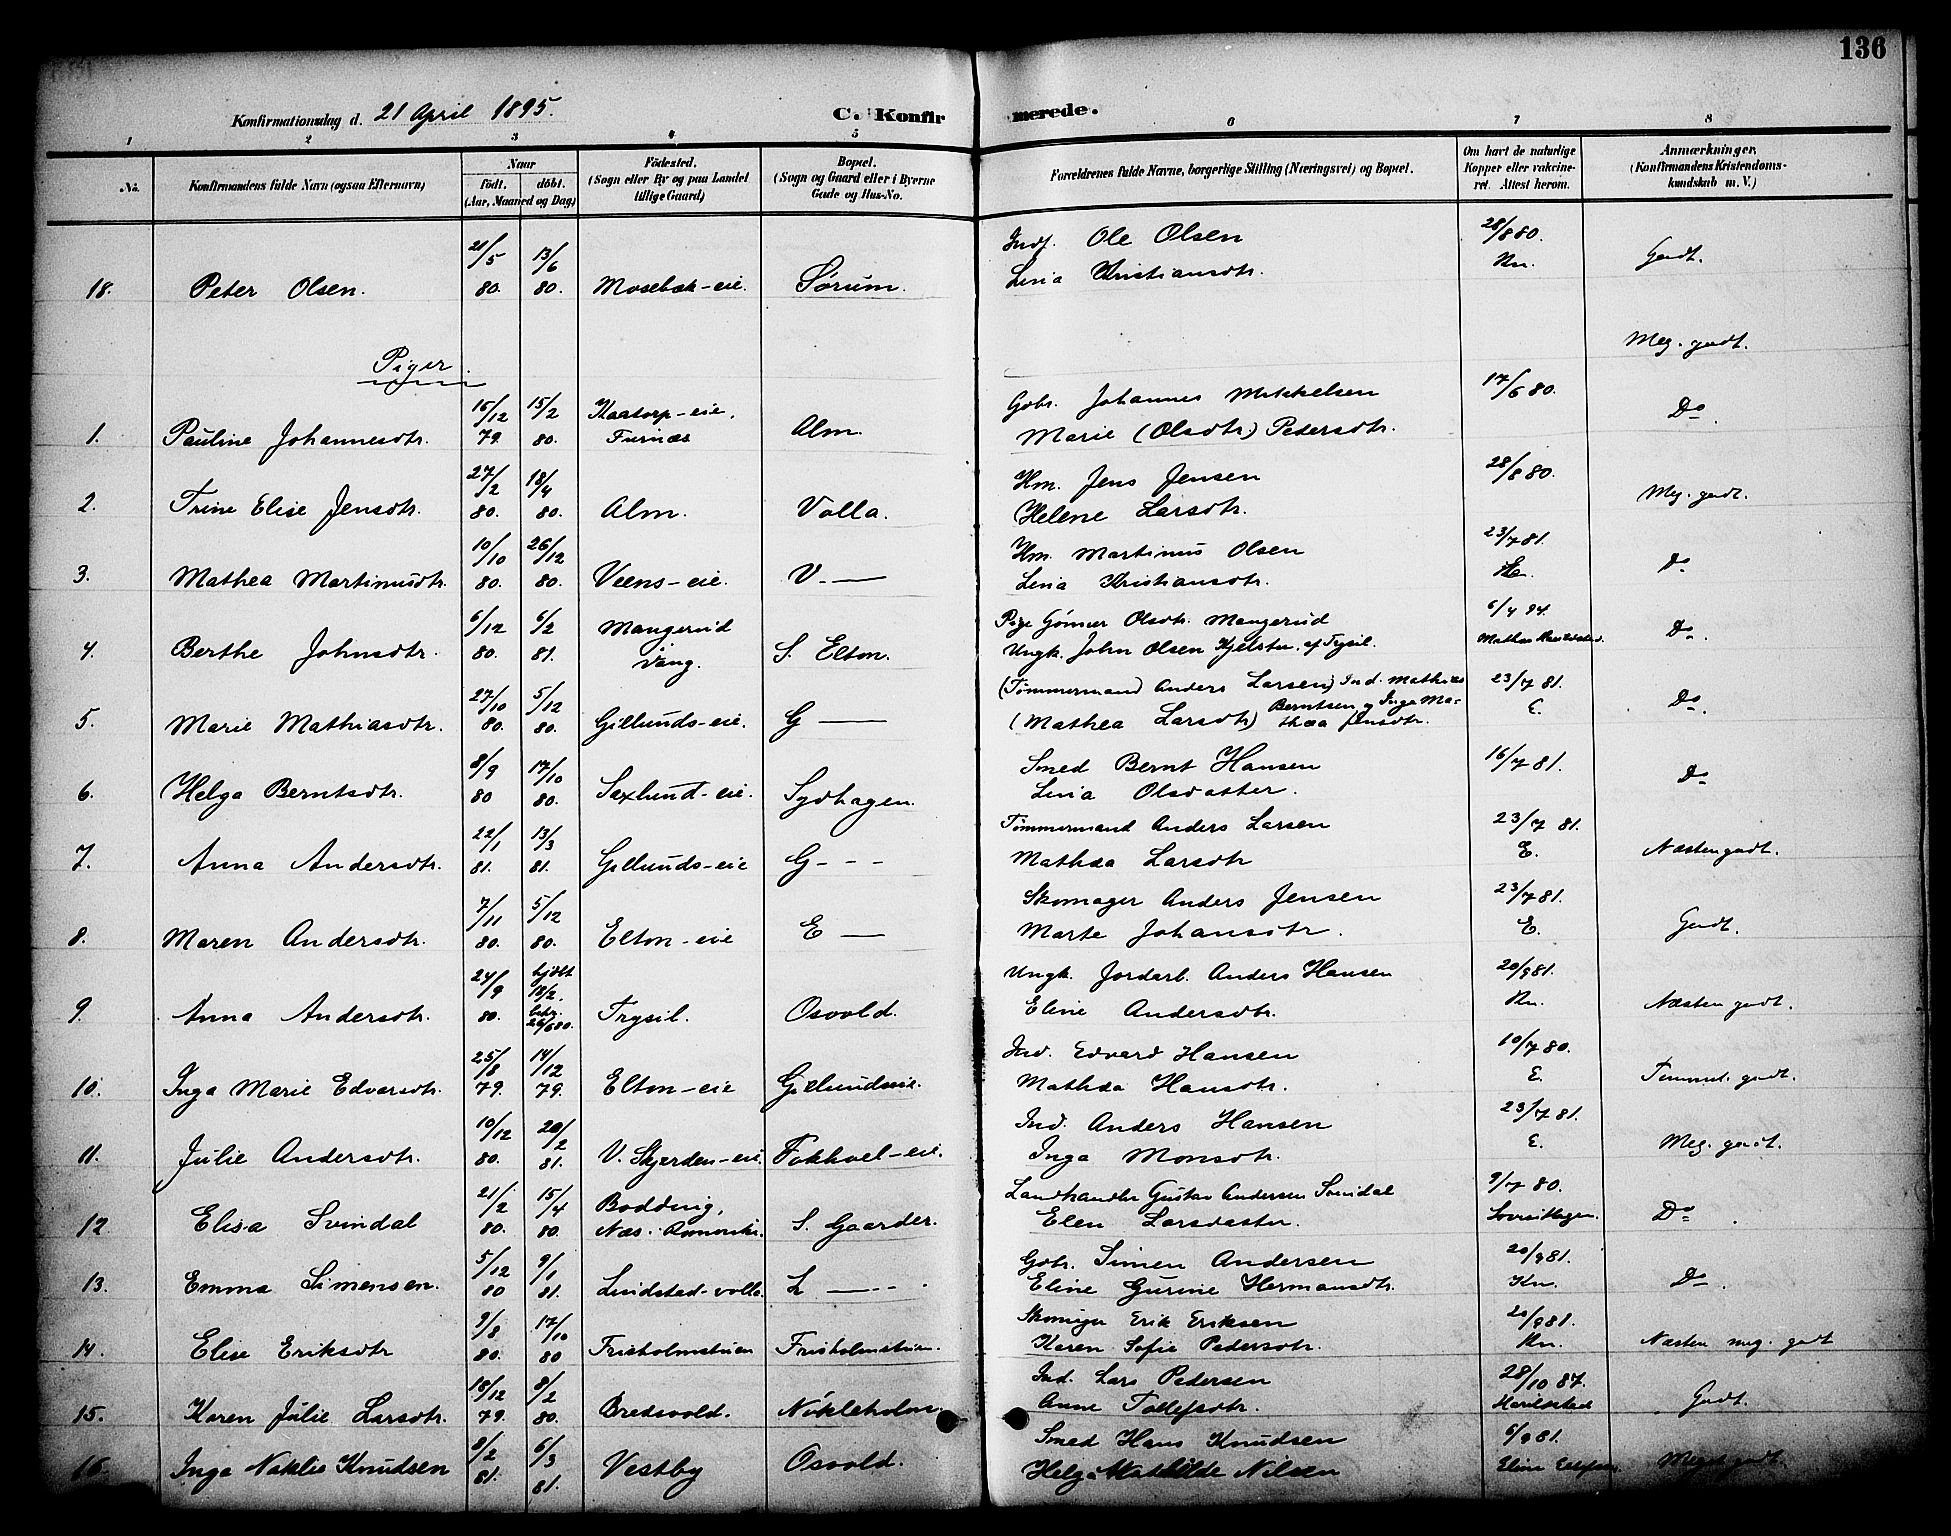 136
Konfirmationsdag d. 21 April 1895.
C. Konfirmerede.
1 2 3 4 5 6 7 8
No.
Konfirmandens fulde Navn (ogsaa Efternavn)
Naar
födt. döbt.
(Aar, Maaned og Dag)
Födested.
(Sogn eller By og paa Landet
tillige Gaard)
Bopæl.
(Sogn og Gaard eller i Byerne
Gade og Hus-No.
Forældrenes fulde Navne, borgerlige Stilling (Næringsvei) og Bopæl.
Om havt de naturlige
Kopper eller vakcine-
ret. Attest herom.
Anmærkninger.
(Konfirmandens Kristendoms-
kundskab m. V.)
18. Peter Olsen. 21/5 80. 13/6 80. Mosebæk-eie. Sørum. Ind. Ole Olsen 28/8 80. Godt.
Lina Kristiansdtr. Kn.
Piger.
Meg. godt.
1. Pauline Johannesdtr. 16/12 79. 15/2 80. Kaatorp-eie, Furnæs Alm. Gobr. Johannes Mikkelsen 17/6 80. Do
Marie (Olsdtr.) Pedersdtr.
2. Trine Elise Jensdtr. 27/2 80. 18/4 80. Alm. Volla. Hm. Jens Jensen 28/8 80. Meg. godt.
Helene Larsdtr.
3. Mathea Martinusdtr. 10/10 80. 26/12 80. Veens-eie. V— Hm. Martinus Olsen 23/7 81. Do
Lina Kristiansdtr.
4. Berthe Johnsdtr. 6/12 80. 6/2 81. Mangerud Vang. S. Elton. Pige Gønner Olsdtr. Mangerud 6/4 94. Do.
Ungk. John Olsen Kjelstu. af Trysil.
5. Marie Mathiasdtr. 27/10 80. 5/12 80. Gillunds-eie. G— (Tømmermand Anders Larsen) Ind. Mathias 23/7 81. Do.
Berntsen og Inga Ma-
(Mathea Larsdtr) thea Jensdtr. E.
6. Helga Berntsdtr. 8/9 80 17/10 80. Saxlund-eie. Sydhagen. Smed Bernt Hansen 16/7 81. Do
Lina Olsdatter.
7. Anna Andersdtr. 22/1 81. 13/3 81. Gillunds-eie G--- Tømmermand Anders Larsen 23/7 81. Næsten godt.
Mathea Larsdtr E.
8. Maren Andersdtr. 7/11 80. 5/12 80. Elton-eie E— Skomager Anders Jensen 23/7 81. Godt.
Marte Johansdtr. E.
9. Anna Andersdtr. 24/9 80. hjdbt 18/2. Trysil. Osvold. Ungk. Jordarb. Anders Hansen 20/9 81. Næsten godt.
Eline Andersdtr. Kn.
10. Inga Marie Edvarsdtr. 25/8 79. 14/12 79. Elton-eie Gillundseie. Ind. Edvard Hansen 10/7 80. Temmel. godt.
Mathea Hansdtr. E.
11. Julie Andersdtr. 10/12 80. 20/2 81. V. Skjerden-eie. Fokhoel-eie. Ind. Anders Hansen 23/7 81. Meg. godt.
Inga Monsdtr. E.
12. Elisa Svindal 21/2 80. 15/4 80. Bodding, Næs. S. Gaarder. Landhandler Gustav Andersen Svindal 9/7 80. Do.
Elen Larsdatter.
13. Emma Simensen. 5/12 80 9/1 81. Lindstad-volla. L—. Gobr. Simen Andersen 20/9 81. Do
Eline Gurine Hermansdtr. Kn.
14. Elise Eriksdtr 9/8 80. 17/10 80 Frisholmstuen Frisholmstuen. Skomager Erik Eriksen 20/9 81. Næsten meg. godt
Karen Sofie Pedersdtr. Kn.
15. Karen Julie Larsdtr. 18/12 79. 8/2 80. Bredvold. Nökleholm. Ind. Lars Pedersen 28/10 87. Godt.
Anne Tollefsdtr.
16. Inga Natelie Knudsen 8/2 81. 6/3 81. Vestby Osvold. Smed Hans Knudsen 6/9 81. Meget godt.
Helga Mathilde Nilsen